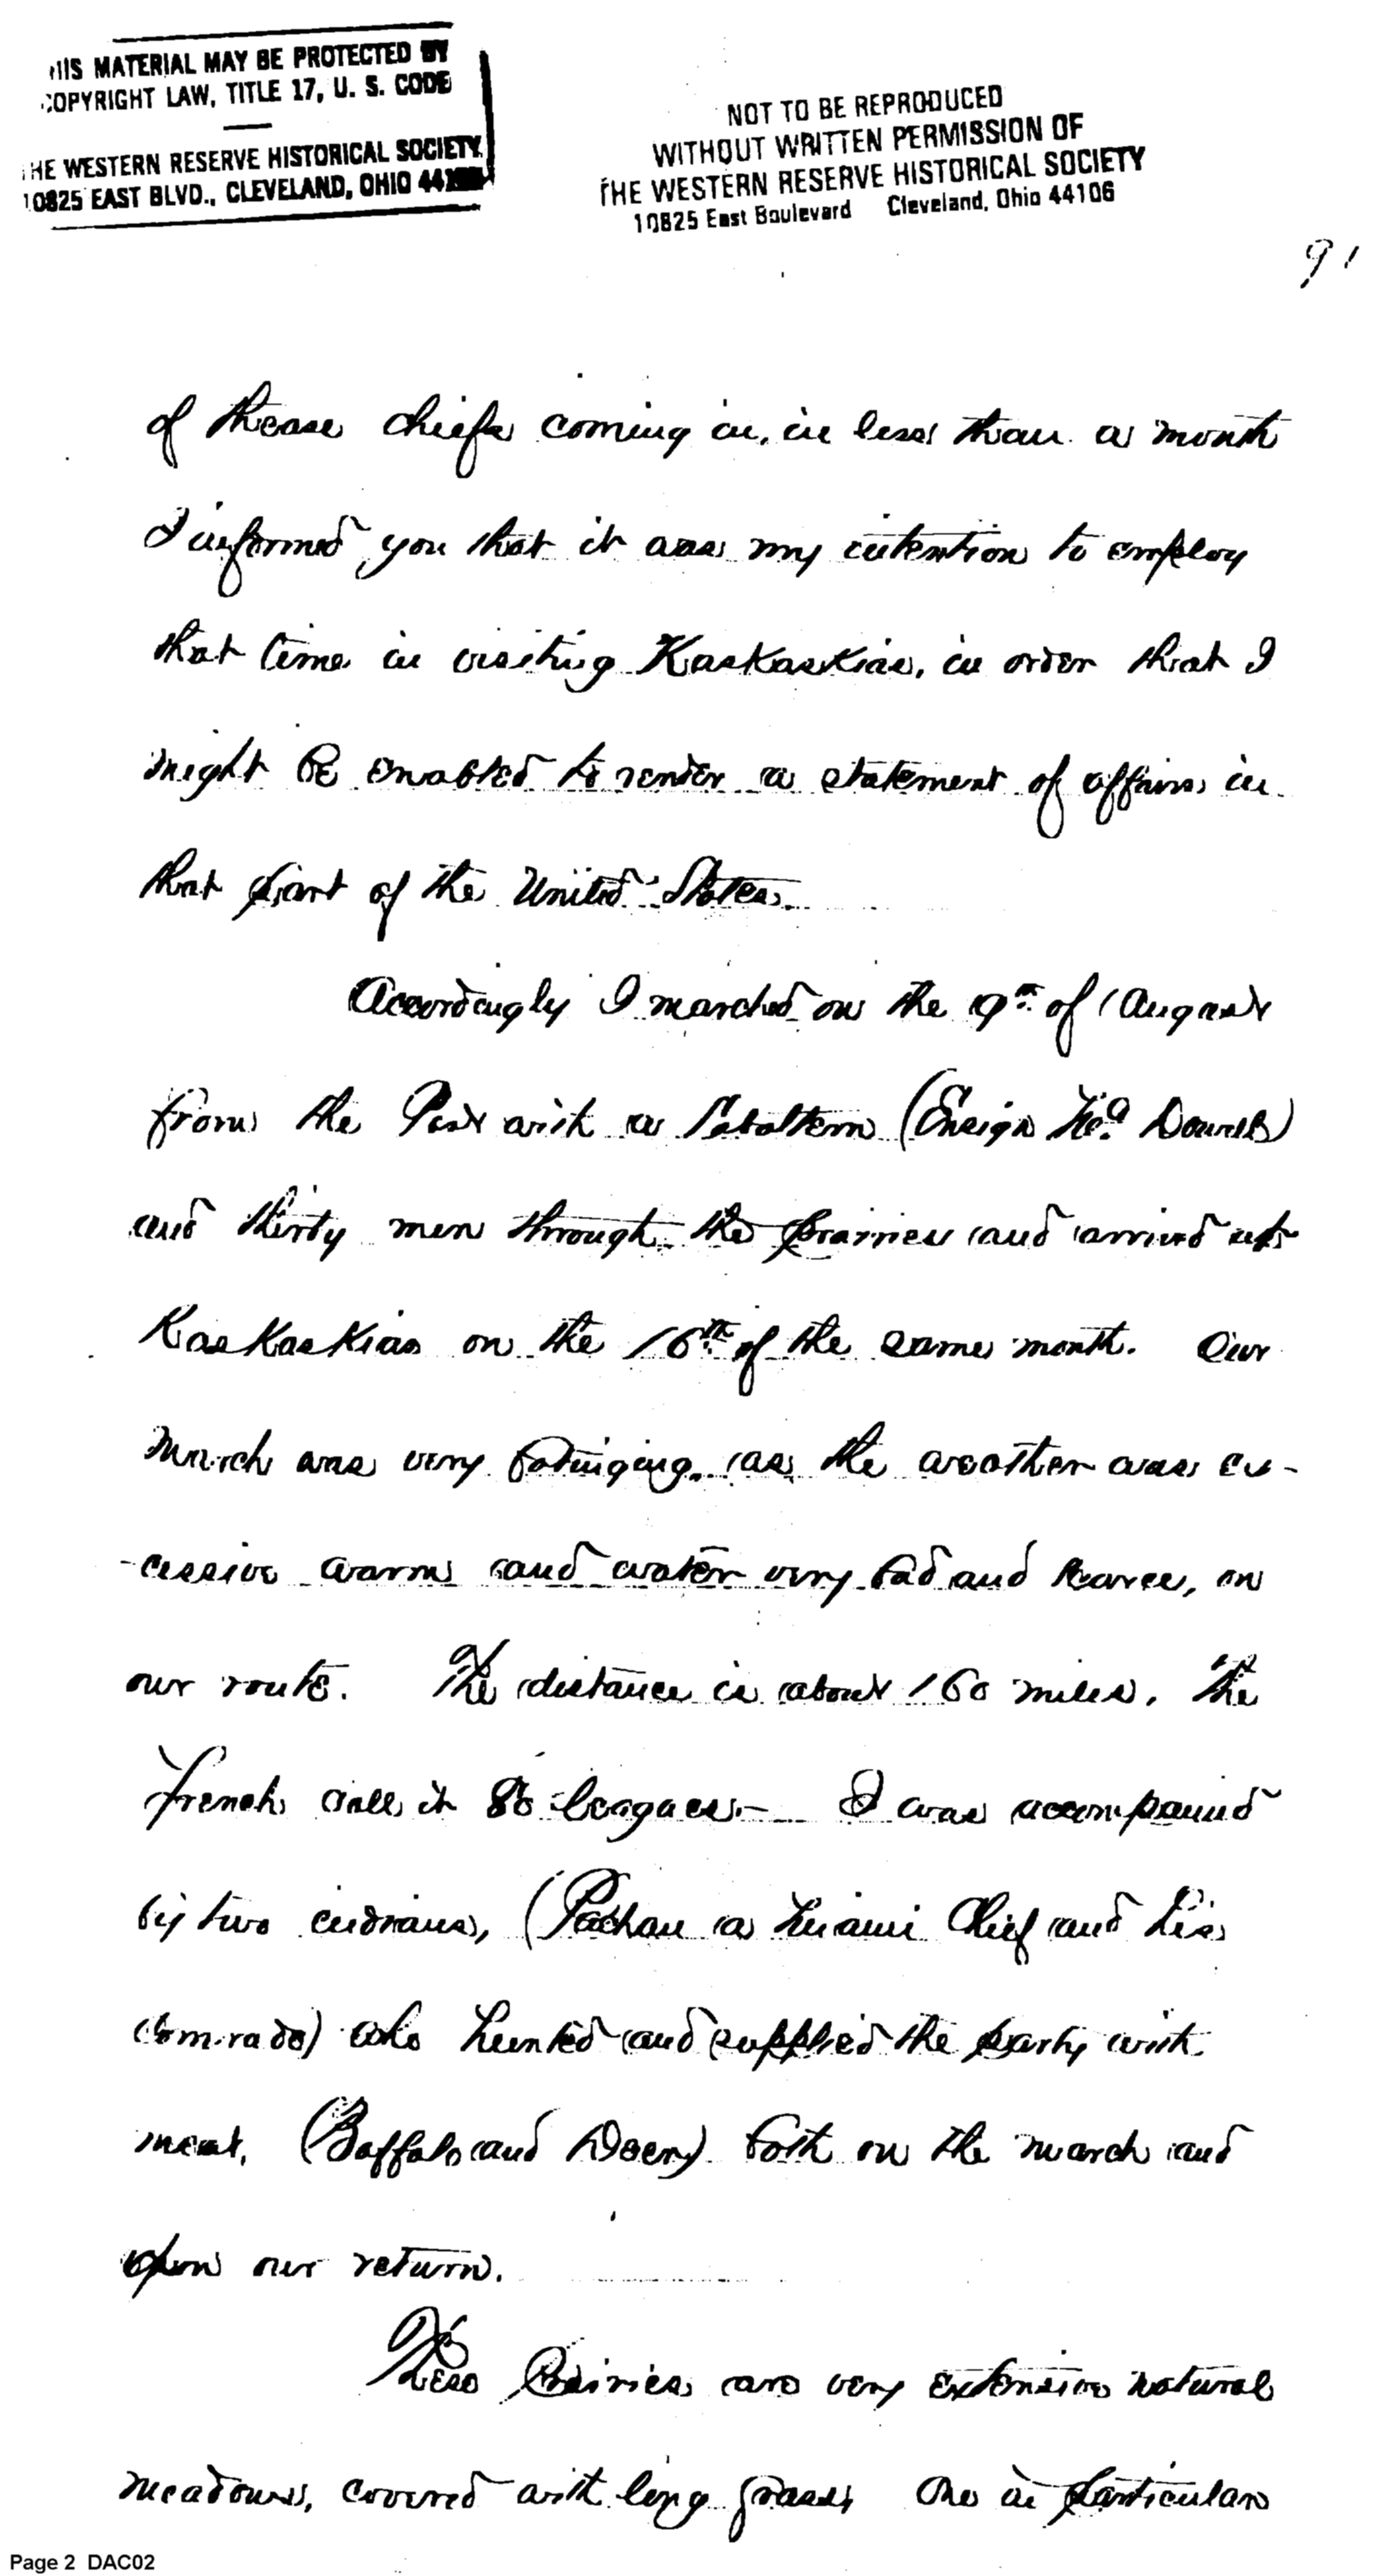 HIS MATERIAL MAY BE PROTECTED BY
COPYRIGHT LAW, TITLE 17, U. S. CODE
THE WESTERN RESERVE HISTORICAL SOCIETY
10825 EAST BLVD., CLEVELAND, OHIO 44106
NOT TO BE REPRODUCED
WITHOUT WRITTEN PERMISSION OF
THE WESTERN RESERVE HISTORICAL SOCIETY
10825 East Boulevard Cleveland, Ohio 44106
91
of these chiefs coming in, in less than a month
I informed you that it was my intention to employ
that time in visiting Kaskaskias, in order that I
might be enabled to render a statement of affairs in
that part of the United States.
Accordingly I marched on the 9th of August
from the Post with a Subaltern (Ensign McDowell)
and thirty men through the prairies and arrived at
Kaskaskias on the 16th of the same month. Our
march was very fatiguing, as the weather was ex-
-cessive warm and water very bad and scarce, on
our route. The distance is about 160 miles. The
french call it 80 leagues.— I was accompanied
by two indians, (Pachan a Miami Chief and his
Comrade) who hunted and supplied the party with
meat, (Buffalo and Deer) both on the march and
upon our return.
These Prairies are very extensive natural
meadows, covered with long grass, One in particular
Page 2 DAC02